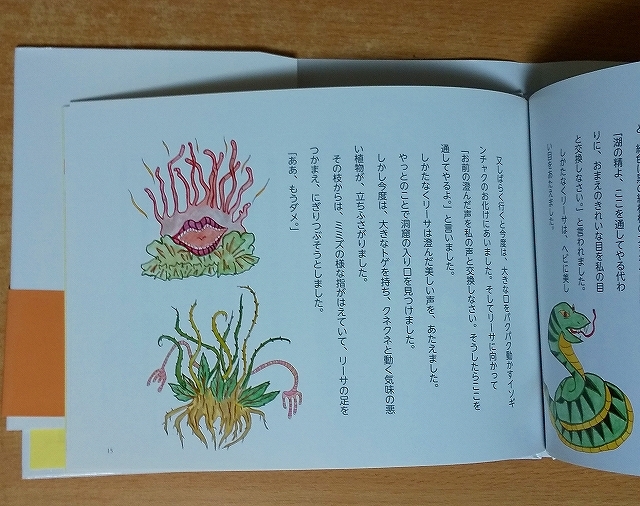 「湖の精よ、ここを通してやる代わ
りに、おまえのきれいな目を私の目
と交換しなさい。」と言われました。
しかたなくリーサは、ヘビに美し
い目をあたえました。
又しばらく行くと今度は、大きな口をパクパク動かすイソギ
ンチャクのお化けにあいました。そしてリーサに向かって
「お前の澄んだ声を私の声と交換しなさい。そうしたらここを
通してやるよ。」と言いました。
しかたなくリーサは澄んだ美しい声を、あたえました。
やっとのことで洞窟の入り口を見つけました。
しかし今度は、大きなトゲを持ち、クネクネと動く気味の悪
い植物が、立ちふさがりました。
その枝からは、ミミズの様な指がはえていて、リーサの足を
つかまえ、にぎりつぶそうとしました。
「ああ、もうダメ。」
15